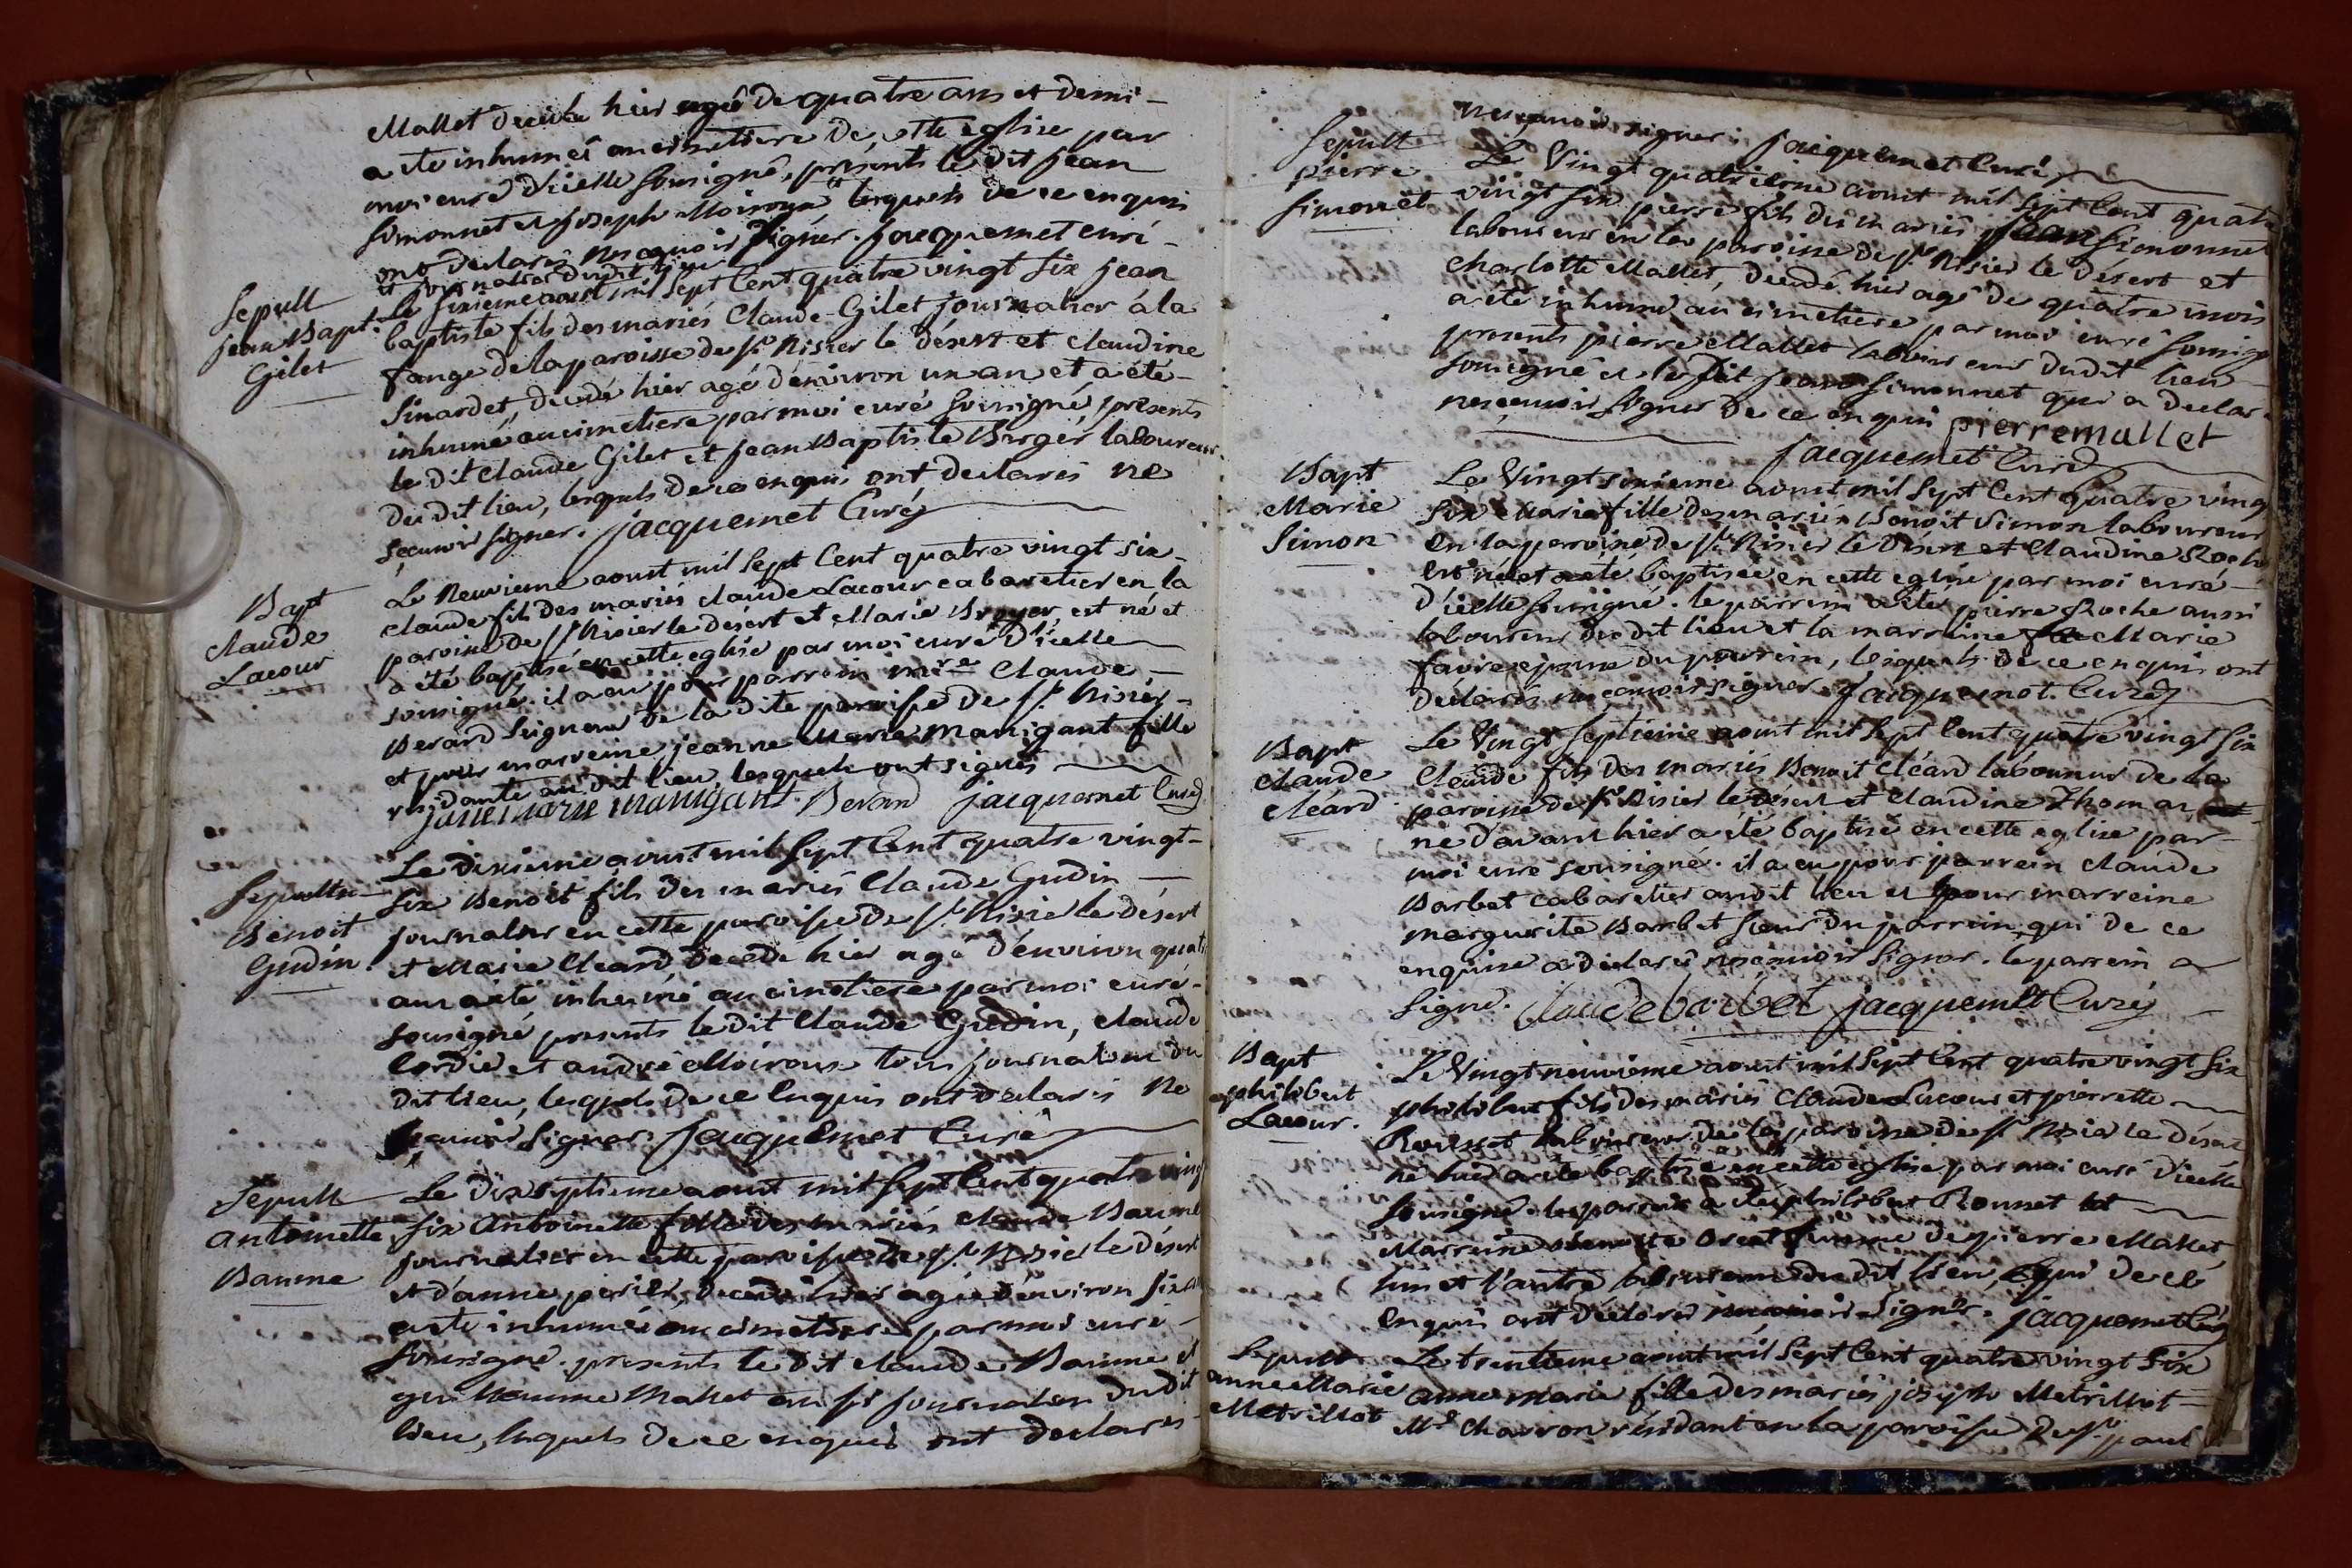 Mallet décédé hier agé de quatre ans et demi -
a été inhumé au cimetiere de cette eglise par
moi curé d'icelle sousigné, présents le dit jean
simonnet et joseph Moiroux lesquels de ce enquis
ont declarés ne sçavoir signer. jacquemet curé -
et journalier dudit lieu
Sepult
jean Bapt.
Gilet
Le sixieme aoust mil sept cent quatre vingt six jean
baptiste fils des mariés Claude Gilet journalier à la
fange de la paroisse de st Nisier le désert et claudine
Sinardet, décédé hier agé d'environ un an et a été -
inhumé au cimetiere par moi curé sousigné, présents
le dit Claude Gilet et jean Baptiste Berger laboureur
du dit lieu, lesquels de ce enquis ont declarés ne
sçauoir signer. jacquemet Curé
Bapt
claude
Lacour
Le neuvieme aoust mil sept cent quatre vingt six -
claude fils des mariés claude Lacour cabaretier en la
paroisse de st Nisier le désert et Marie Broyer, est né et
a été baptisé en cette eglise par moi curé d'icelle
sousigné. il a eu pour parrein mre Claude -
Berard seigneur de la dite paroisse de st. Nisier -
et pour marreine jeanne Marie Manigant fille
residante au dit lieu lesquels ont signés
jane marie manigant Berard jacquemet Curé
Sepultu
Benoit
Gudin
Le dixieme aoust mil sept cent quatre vingt -
six Benoit fils des mariés Claude Gudin
journalier en cette paroisse de st Nisie le désert
et Marie Cleard, décédé hier agé d'environ quatre
ans a été inhumé au cimetiere par moi curé -
sousigné presents le dit Claude Gudin, claude
Cordie et andré Moiroux tous journaliers du
dit lieu, lesquels de ce enquis ont declarés ne
sçauoir signer. jacquemet Curé
Sepult
antoinette
Baume
Le dix septieme aoust mil sept cent quatre vingt
six antoinette fille des mariés claude Baume
journalier en cette paroisse de st Nisie le désert
et d'anne perier, décédée hier agée d'environ six ans
a été inhumée au cimetiere par moi curé -
sousigné. presents le dit claude Baume et
guillaume Mallet aussi journalier dudit
lieu, lesquels de ce enquis ont declarés -
ne sçauoir signer. jacquemet Curé
Sepult
pierre
simonet
Le Vingt quatrieme aoust mil sept cent quatre
vingt six pierre fils des mariés jean simonnet
laboureur en la paroisse de st Nisier le désert et
charlotte Mallet, décédé hier agé de quatre mois
a été inhumé au cimetiere par moi curé sousigné
presents pierre Mallet laboureur dudit lieu
sousigné et le dit jean simonnet qui a declaré
ne sçauoir signer de ce enquis pierre mallet
jacquemet Curé
Bapt
Marie
Simon
Le Vingt sixieme aoust mil sept cent quatre vingt
six Marie fille des mariés Benoit Simon laboureur
en la paroisse de st Nisier le désert et Claudine Roche
est née et a été baptisée en cette eglise par moi curé -
d'icelle sousigné. le parrein a été pierre Roche aussi
laboureur du dit lieu et la marreine Marie
favre epouse du parrein, lesquels de ce enquis ont
déclarés ne sçauoir signer. Jacquemet. Curé
Bapt
claude
cléard
Le Vingt septieme aoust mil sept cent quatre vingt six
Claude fils des mariés Benoit Cléard laboureur de la
paroisse de st Nisier le désert et Claudine Thomas
né d'avant hier a été baptisé en cette eglise par -
moi curé sousigné. il a eu pour parrein claude
Barbet cabaretier au dit lieu et pour marreine
marguerite Barbet soeur du parrein, qui de ce
enquise a declaré ne sçauoir signer. le parrein a
signé. Claude barbet jacquemet Curé
Bapt
philibert
Lacour.
Le Vingt neuvieme aoust mil sept cent quatre vingt six
philibert fils des mariés Claude Lacour et pierrette
Rousset laboureur de la paroisse de st Nisie le désert
né hier a été baptisé en cette eglise par moi curé d'icelle
sousigné. le parrein a été philibert Rousset et
Marreine femme de pierre Mallet
l'un et l'autre laboureur du dit lieu, qui de ce
enquis ont déclarés ne sçauoir signer. jacquemet Curé
Sepult
anne Marie
Metrillot
Le trentieme aoust mil sept cent quatre vingt six
anne marie fille des mariés joseph Metrillot -
Md Charron résidant en la paroisse de st paul